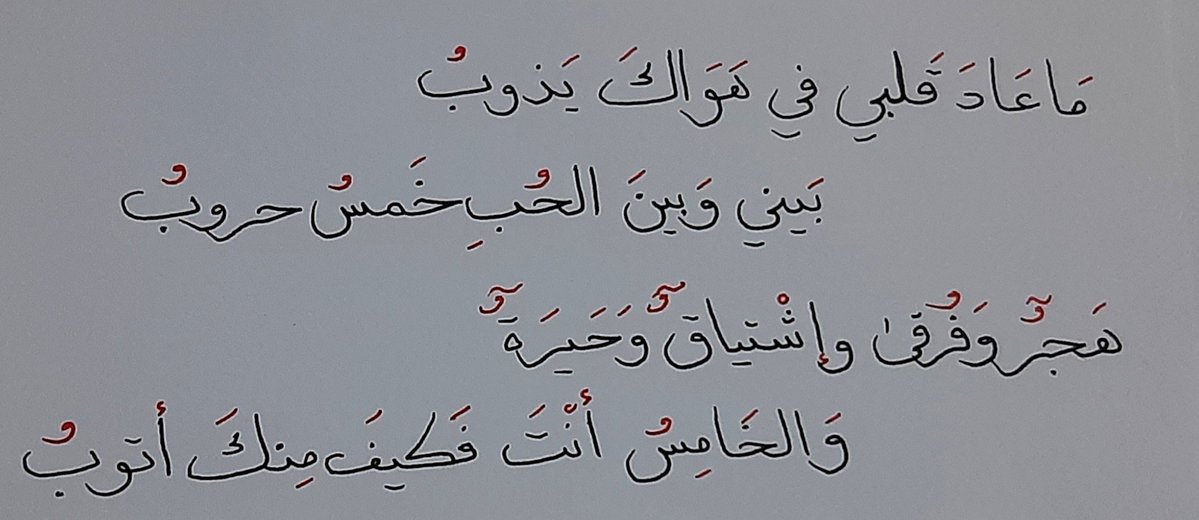 مَا عَادَ قَلبي في هَوَاكَ يَذوبُ
بَيني وَبينَ الحُبِ خَمسُ حروبُ
هَجرٌ وَفُرقىٰ وإشْتياقٌ وَحَيَرَةٌ
وَالخَامِسُ أنْتَ فَكيفَ مِنكَ أتوبُ